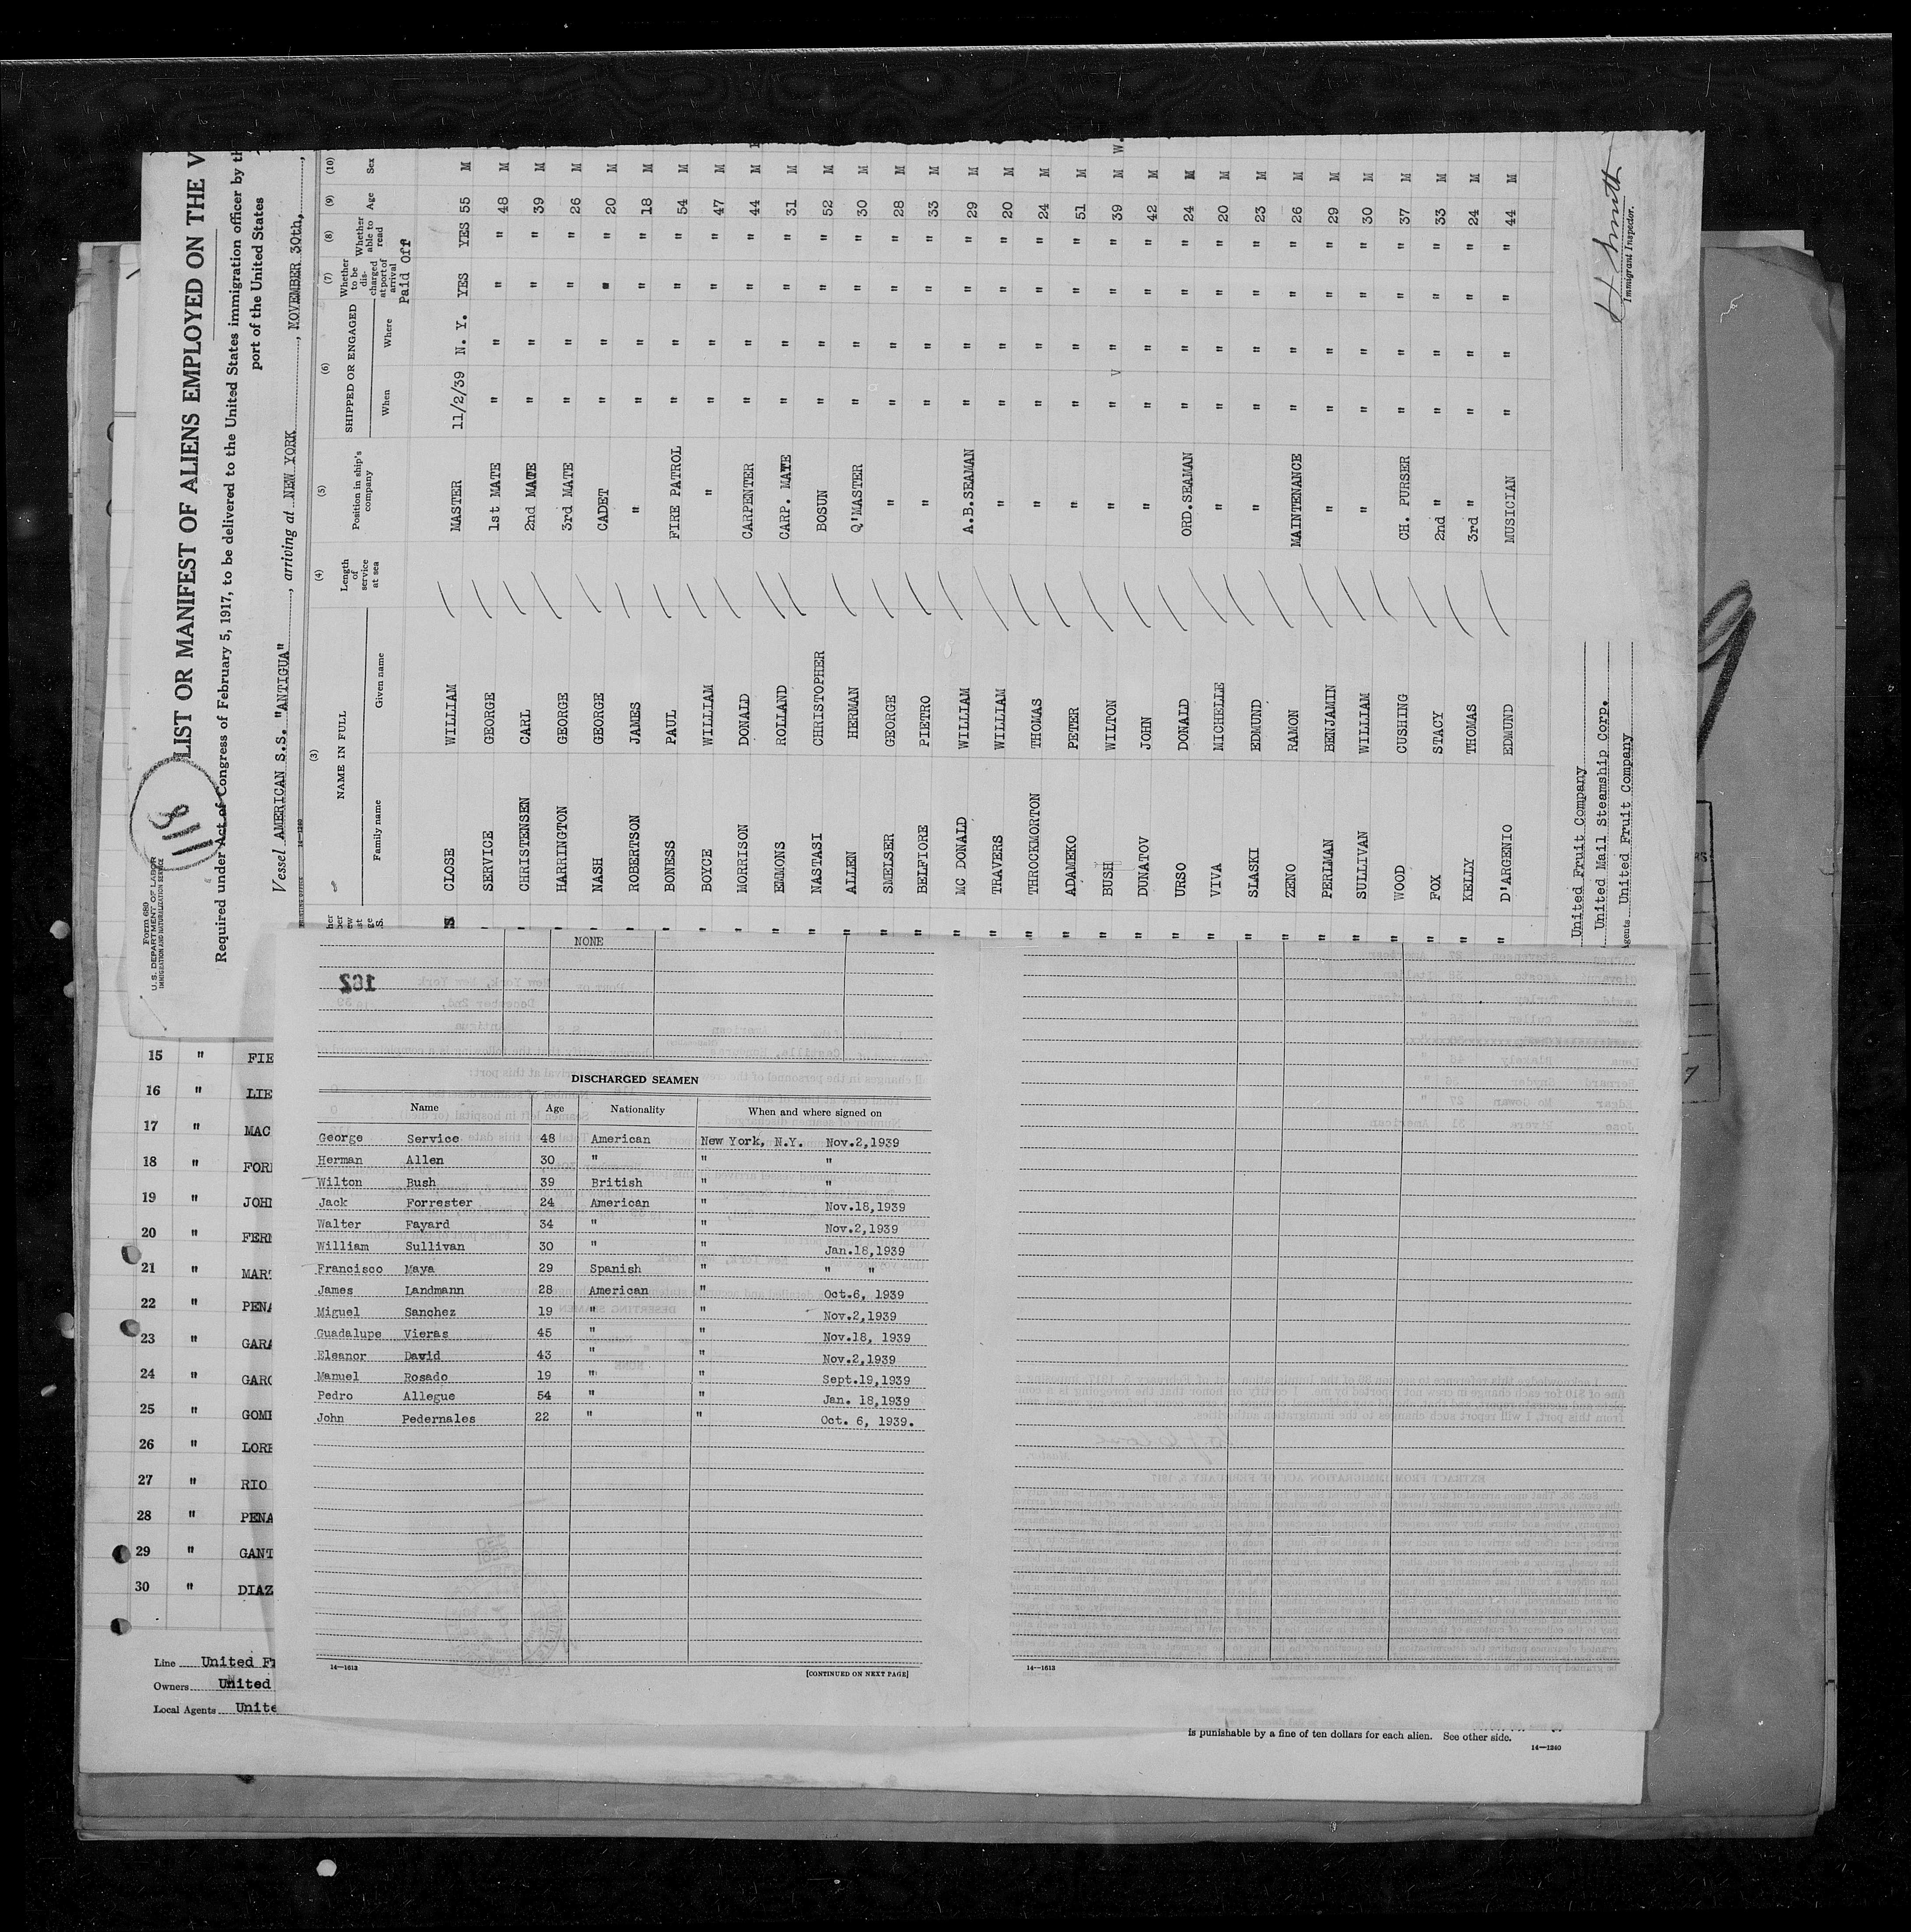 Form 680
U. S. DEPARTMENT OF LABOR
IMMIGRATION AND NATURALIZATION SERVICE
811
LIST OR MANIFEST OF ALIENS EMPLOYED ON THE V
Required under Act of Congress of February 5, 1917, to be delivered to the United States immigration officer by th
port of the United States
Vessel AMERICAN S.S. "ANTIGUA", arriving at NEW YORK, NOVEMBER 30th,
14—1240
(3) (4) (5) (6) (7) (8) (9) (10)
NAME IN FULL
Family name Given name
Length of service at sea
Position in ship's company
SHIPPED OR ENGAGED
When Where
Whether to be discharged at port of arrival
Whether able to read
Age
Sex
Paid Off
CLOSE WILLIAM MASTER 11/2/39 N. Y. YES YES 55 M
SERVICE GEORGE 1st MATE " " " " 48 M
CHRISTENSEN CARL 2nd MATE " " " " 39 M
HARRINGTON GEORGE 3rd MATE " " " " 26 M
NASH GEORGE CADET " " " " 20 M
ROBERTSON JAMES " " " " " 18 M
BONESS PAUL FIRE PATROL " " " " 54 M
BOYCE WILLIAM " " " " " 47 M
MORRISON DONALD CARPENTER " " " " 44 M
EMMONS ROLLAND CARP. MATE " " " " 31 M
NASTASI CHRISTOPHER BOSUN " " " " 52 M
ALLEN HERMAN Q'MASTER " " " " 30 M
SMELSER GEORGE " " " " " 28 M
BELFIORE PIETRO " " " " " 33 M
MC DONALD WILLIAM A.B.SEAMAN " " " " 29 M
TRAVERS WILLIAM " " " " " 20 M
THROCKMORTON THOMAS " " " " " 24 M
ADAMEKO PETER " " " " " 51 M
BUSH WILTON " " " " " 39 M W.
DUNATOV JOHN " " " " " 42 M
URSO DONALD ORD.SEAMAN " " " " 24 M
VIVA MICHELLE " " " " " 20 M
SLASKI EDMUND " " " " " 23 M
ZENO RAMON MAINTENANCE " " " " 26 M
PERLMAN BENJAMIN " " " " " 29 M
SULLIVAN WILLIAM " " " " " 30 M
WOOD CUSHING CH. PURSER " " " " 37 M
FOX STACY 2nd " " " " " 33 M
KELLY THOMAS 3rd " " " " " 24 M
D'ARGENIO EDMUND MUSICIAN " " " " 44 M
United Fruit Company
United Mail Steamship Corp.
gents United Fruit Company
H Smith
Immigrant Inspector.
NONE
162
DISCHARGED SEAMEN
Name Age Nationality When and where signed on
George Service 48 American New York, N.Y. Nov.2,1939
Herman Allen 30 " " "
Wilton Bush 39 British " "
Jack Forrester 24 American " Nov.18,1939
Walter Fayard 34 " " Nov.2,1939
William Sullivan 30 " " Jan.18,1939
Francisco Maya 29 Spanish " " "
James Landmann 28 American " Oct.6, 1939
Miguel Sanchez 19 " " Nov.2,1939
Guadalupe Vieras 45 " " Nov.18, 1939
Eleanor David 43 " " Nov.2,1939
Manuel Rosado 19 " " Sept.19,1939
Pedro Allegue 54 " " Jan. 18,1939
John Pedernales 22 " " Oct. 6, 1939.
14—1613
[CONTINUED ON NEXT PAGE]
14—1613
15 " FIE
16 " LIE
17 " MAC
18 " FOR
19 " JOH
20 " FER
21 " MAR
22 " PENA
23 " GARA
24 " GARC
25 " GOM
26 " LORE
27 " RIO
28 " PENA
29 " GANT
30 " DIAZ
Line United Fr
Owners United
Local Agents Unite
is punishable by a fine of ten dollars for each alien. See other side.
14—1240